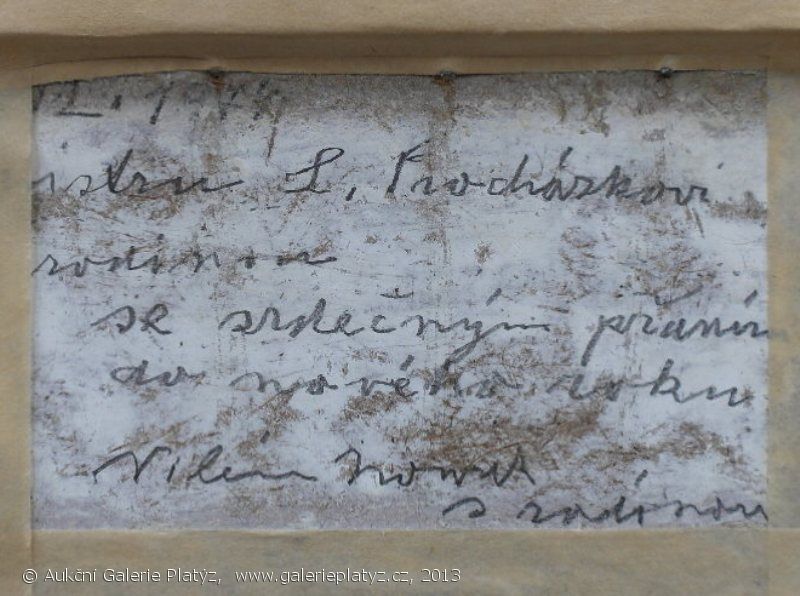 istru L. Procházkovi
rodinou
se srdečným přáním
do nového roku
Vilém Nowak
s rodinou
© Aukční Galerie Platýz, www.galerieplatyz.cz, 2013